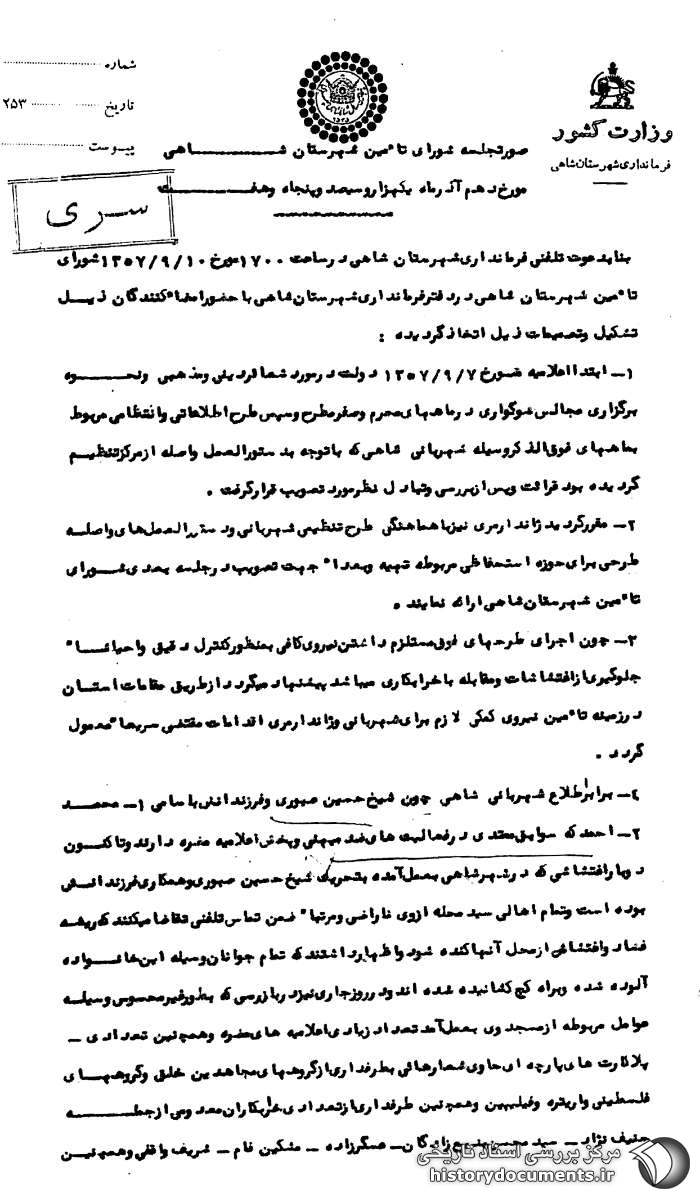 شماره
تاریخ
۲۵۳
پیوست
وزارت کشور
فرمانداری شهرستان شاهی
سری
صورتجلسه شورای تأمین شهرستان شاهی
مورخ دهم آذرماه یکهزاروسیصدوپنجاه وهفت
بنابدعوت تلفنی فرمانداری شهرستان شاهی درساعت ۱۷۰۰ مورخ ۱۳۵۷/۹/۱۰ شورای
تأمین شهرستان شاهی دردفترفرمانداری شهرستان شاهی باحضورامضاءکنندگان ذیل
تشکیل وتصمیمات ذیل اتخاذگردیده :
۱ـ ابتدااعلامیه مورخ ۱۳۵۷/۹/۷ دولت درموردشعائردینی ومذهبی ونحوه
برگزاری مجالس سوگواری درماههای محرم وصفرمطرح وسپس طرح اطلاعاتی وانتظامی مربوط
بماههای فوق الذکروسیله شهربانی شاهی که باتوجه بدستورالعمل واصله ازمرکزتنظیم
گردیده بودقرائت وپس ازبررسی وتبادل نظرموردتصویب قرارگرفت .
۲ـ مقررگردیدژاندارمری نیزباهماهنگی طرح تنظیمی شهربانی ودستورالعملهای واصله
طرحی برای حوزه استحفاظی مربوطه تهیه وبعداً جهت تصویب درجلسه بعدی شورای
تأمین شهرستان شاهی ارائه نمایند .
۳ـ چون اجرای طرحهای فوق مستلزم داشتن نیروی کافی بمنظورکنترل دقیق واحیاناً
جلوگیری ازاغتشاشات ومقابله باخرابکاری میباشدپیشنهادمیگرددازطریق مقامات استان
درزمینه تأمین نیروی کمکی لازم برای شهربانی وژاندارمری اقدامات مقتضی سریعاً معمول
گردد .
۴ـ برابراطلاع شهربانی شاهی چون شیخ حسین صبوری وفرزندانش باسامی ۱ـ محمد
۲ـ احمدکه سوابق متعددی درفعالیت های ضدمیهنی وپخش اعلامیه مضره دارندوتاکنون
دوباراغتشاشی که درشهرشاهی بعمل آمده بتحریک شیخ حسین صبوری وهمکاری فرزندانش
بوده است وتمام اهالی سیدمحله ازوی ناراضی ومرتباً ضمن تماس تلفنی تقاضامیکنندکه ریشه
فسادواغتشاش ازمحل آنهاکنده شودواظهارداشتندکه تمام جوانان وسیله این خانواده
آلوده شده وبراه کج کشانیده شده اندودرروزجاری نیزدربازرسی که بطورغیرمحسوس وسیله
عوامل مربوطه ازمسجدوی بعمل آمدتعدادزیادی اعلامیه های مضره وهمچنین تعدادی ـ
پلاکارت های پارچه ای حاوی شعارهائی بطرفداری ازگروههای مجاهدین خلق وگروههای
فلسطینی واریتره وفیلیپین وهمچنین طرفداری ازتعدادی خرابکاران معدومی ازجمله
حنیف نژاد ـ سیدمحسن بدیع زادگان ـ عسگرزاده ـ مشکین فام ـ شریف واقفی وهمچنین
مرکز بررسی اسناد تاریخی
historydocuments.ir